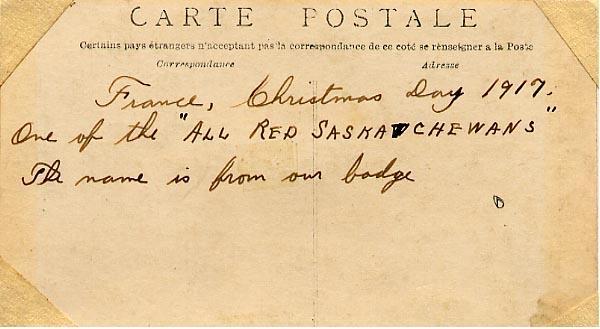 CARTE POSTALE
Certains pays étrangers n'acceptant pas la correspondance de ce coté se renseigner a la Poste
Correspondance Adresse
France, Christmas Day 1917.
One of the "ALL RED SASKATCHEWANS"
The name is from our badge